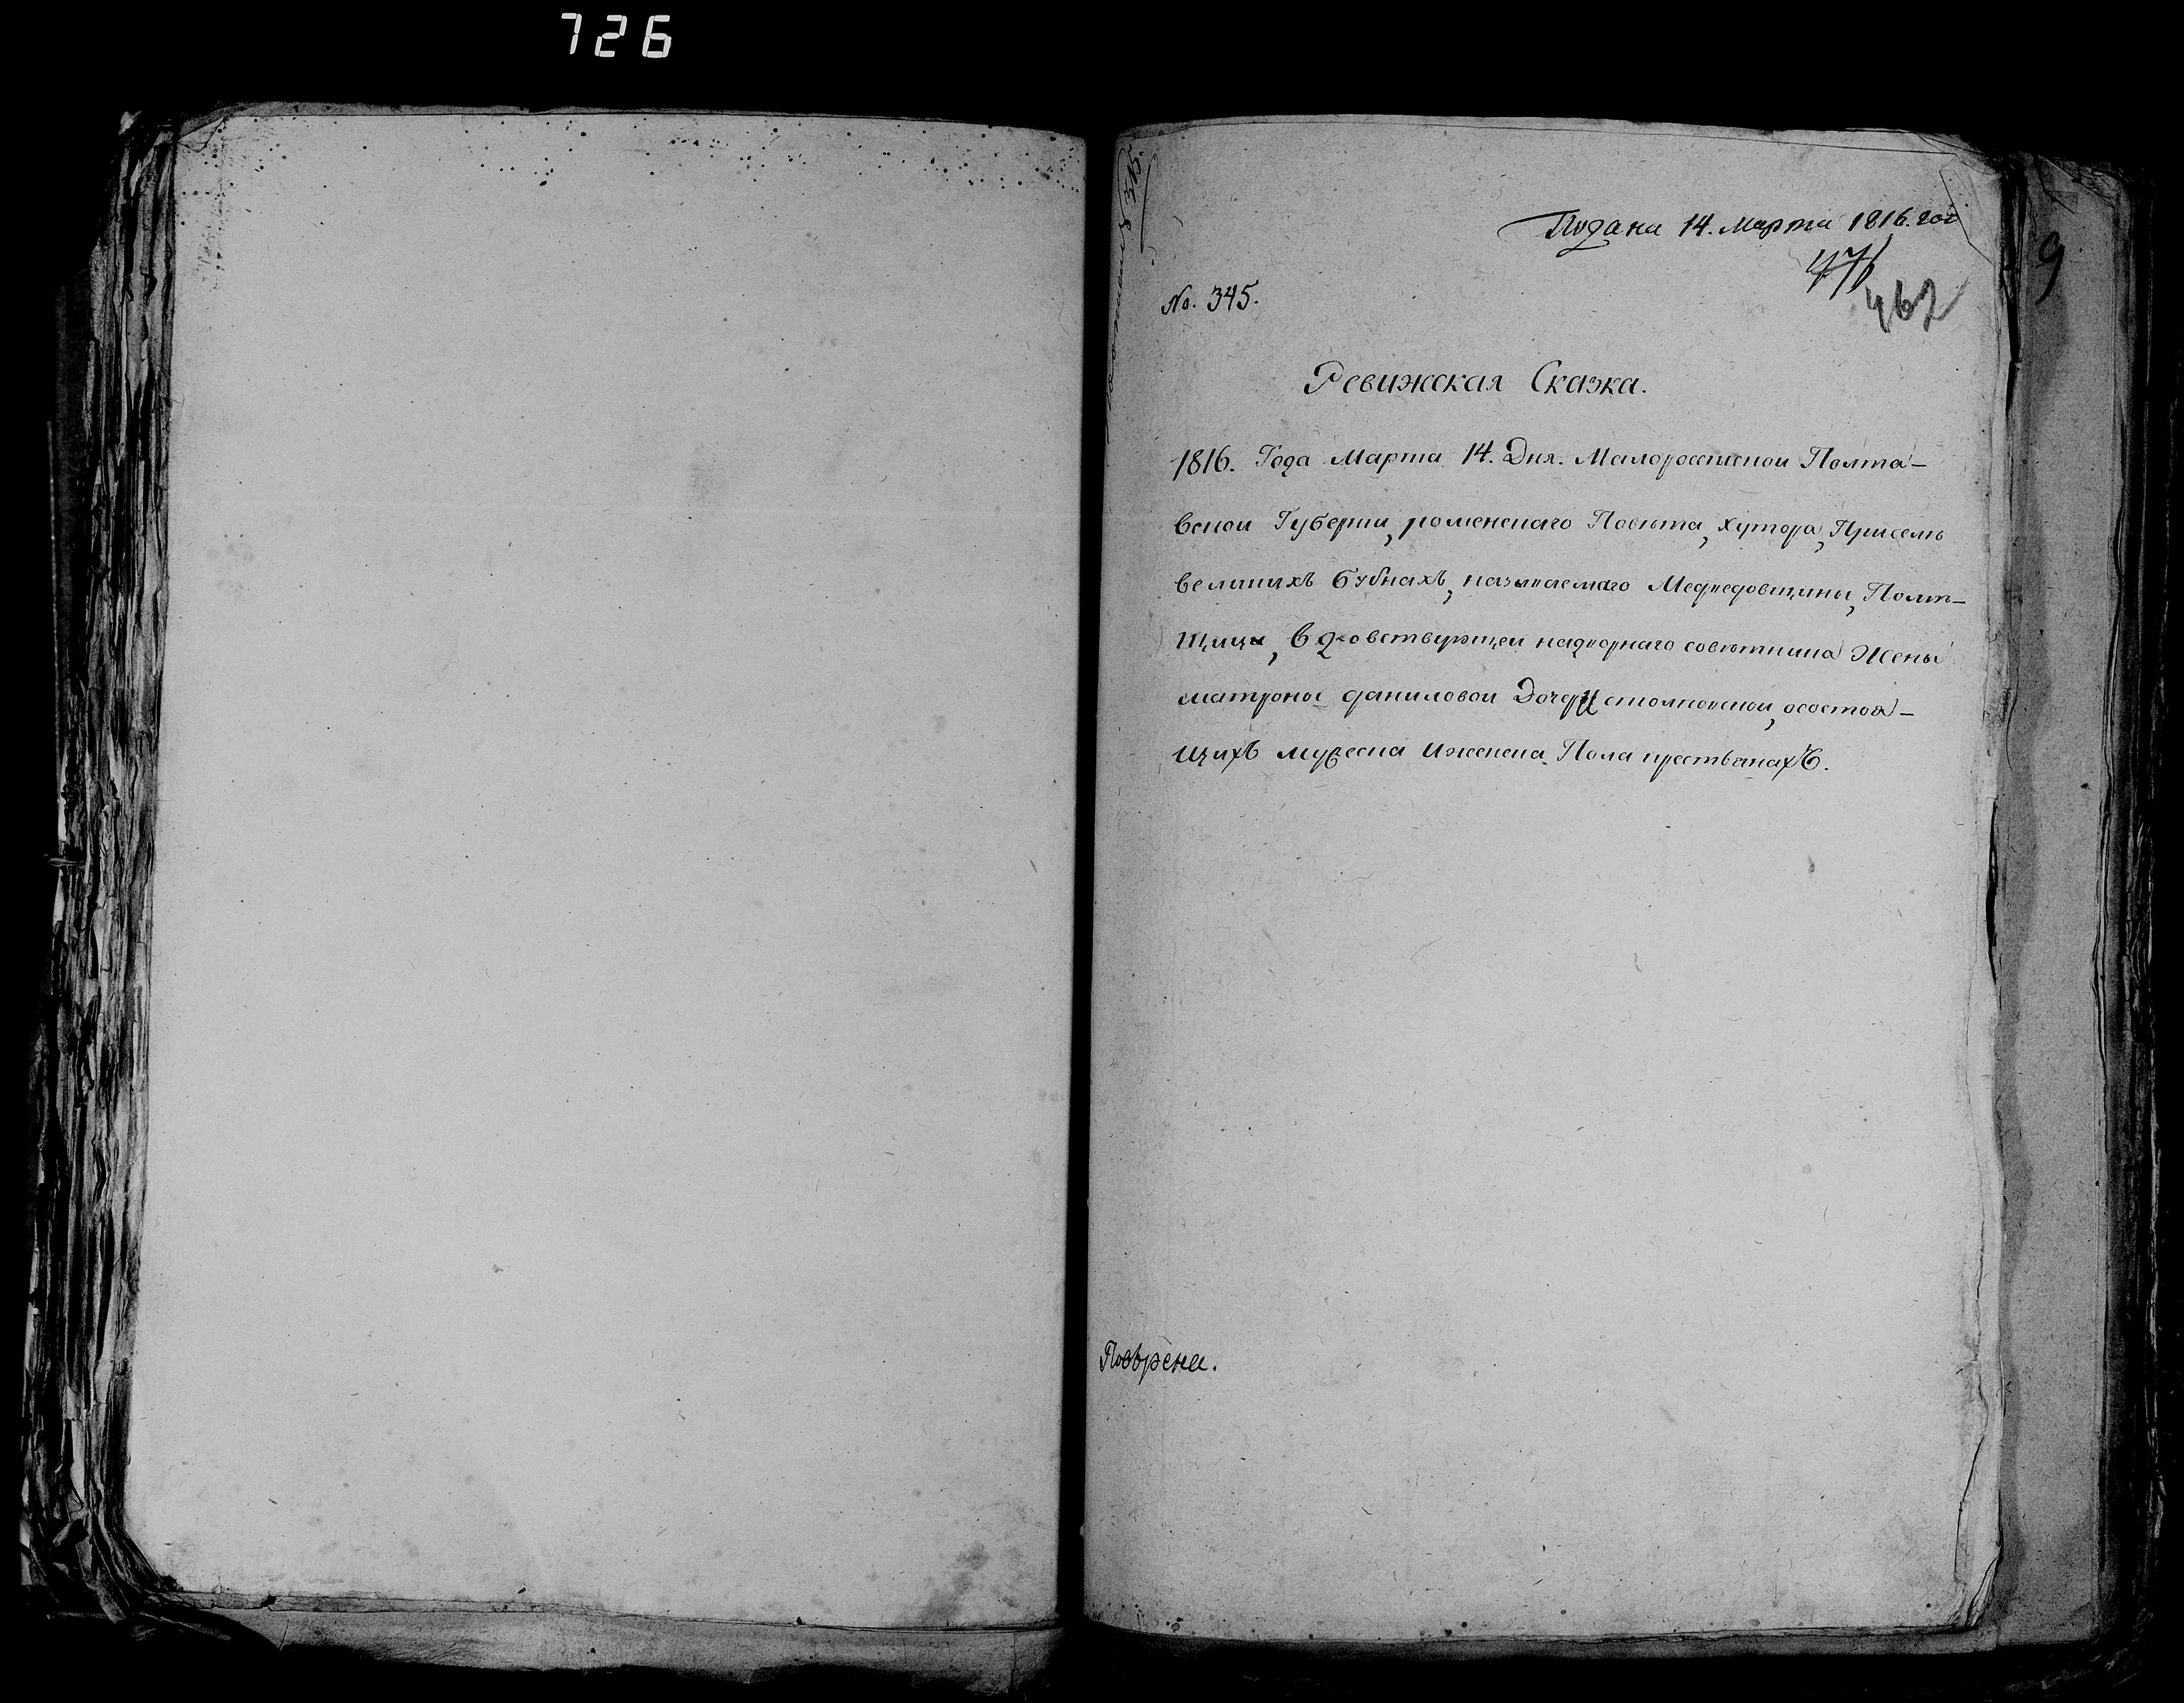 726
Подана 14. Марта 1816. год
471
462
9
No. 345.
Ревижская Сказка.
1816. Года Марта 14. Дня. Малороссийской Полта-
вской Губернии, роменскаго Повѣта, хутора, Присемъ
великихъ Бубнахъ, называемаго Медведовщины, Помѣ-
щицы, вдовствующей надворнаго совѣтника Жены
матроны даниловой Дочери, осостоя-
щихъ мужеска Иженска Пола крестьянахъ.
Повѣрена.